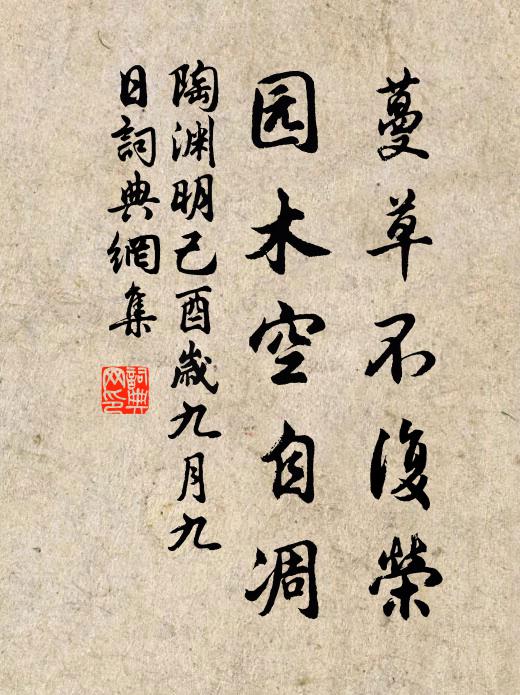 蔓草不復榮
园木空自凋
陶渊明己酉歲九月九
日詞典網集
詞典
网印